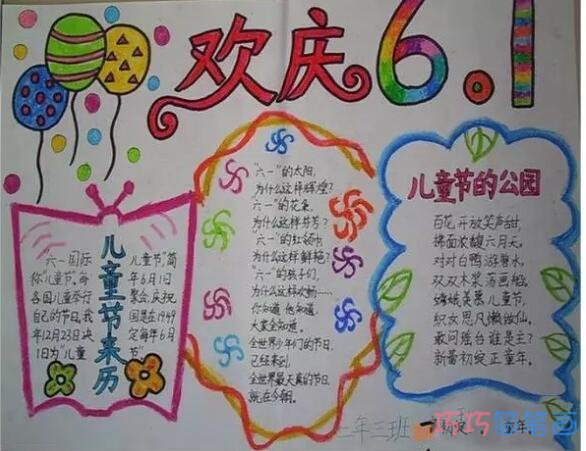 欢庆6.1
儿童节来历
"六一国际
你"儿童节。每
各国儿童举行
自己的节日。我
年12月23日决
1日为"儿童
儿童节"简
年6月1日
聚会,庆祝
国是在1949
定每年6月
节"。
"六一"的太阳,
为什么这样辉煌?
"六一"的花朵,
为什么这样芬芳?
"六一"的红领巾
为什么这样鲜艳?
"六一"的孩子们,
为什么这样欢畅……
你知道,他知道,
大家全知道。
全世界少年们的节日,
已经来到,
全世界最天真的节日,
就在今朝。
儿童节的公园
百花开放笑声甜,
拂面浓馥六月天。
对对白鸭游碧水,
双双木桨荡画船。
嫦娥羡慕儿童节,
织女思凡懒做仙。
敢问瑶台谁是主?
新蕾初绽正童年。
三年三班
童年。
巧巧简笔画